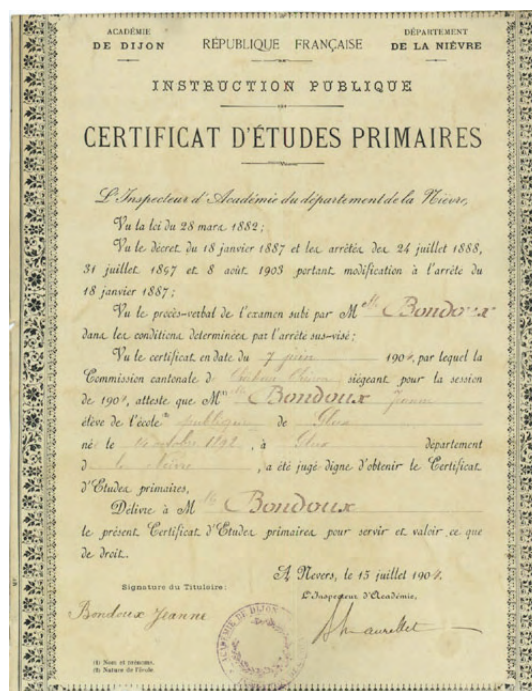 ACADÉMIE
DE DIJON
RÉPUBLIQUE FRANÇAISE
DÉPARTEMENT
DE LA NIÈVRE
INSTRUCTION PUBLIQUE
CERTIFICAT D'ÉTUDES PRIMAIRES
L'Inspecteur d'Académie du département de la Nièvre,
Vu la loi du 28 mars 1882;
Vu le décret du 18 janvier 1887 et les arrêtés des 24 juillet 1888,
31 juillet 1897 et 8 août 1903 portant modification à l'arrêté du
18 janvier 1887;
Vu le procès-verbal de l'examen subi par Mlle Bondoux
dans les conditions déterminées par l'arrêté sus-visé;
Vu le certificat en date du 7 juin 1904, par lequel la
Commission cantonale d Château-Chinon siégeant pour la session
de 1904, atteste que Mlle Bondoux Jeanne
élève de l'école publique de Glux
né le octobre 1892, à Glux département
d la Nièvre, a été jugé digne d'obtenir le Certificat
d'Etudes primaires,
Délivre à Mlle Bondoux
le présent Certificat d'Etudes primaires pour servir et valoir ce que
de droit.
A Nevers, le 15 juillet 1904.
Signature du Titulaire:
L'Inspecteur d'Académie,
Bondoux Jeanne
ACADÉMIE DE DIJON
(1) Nom et prénoms.
(2) Nature de l'école.